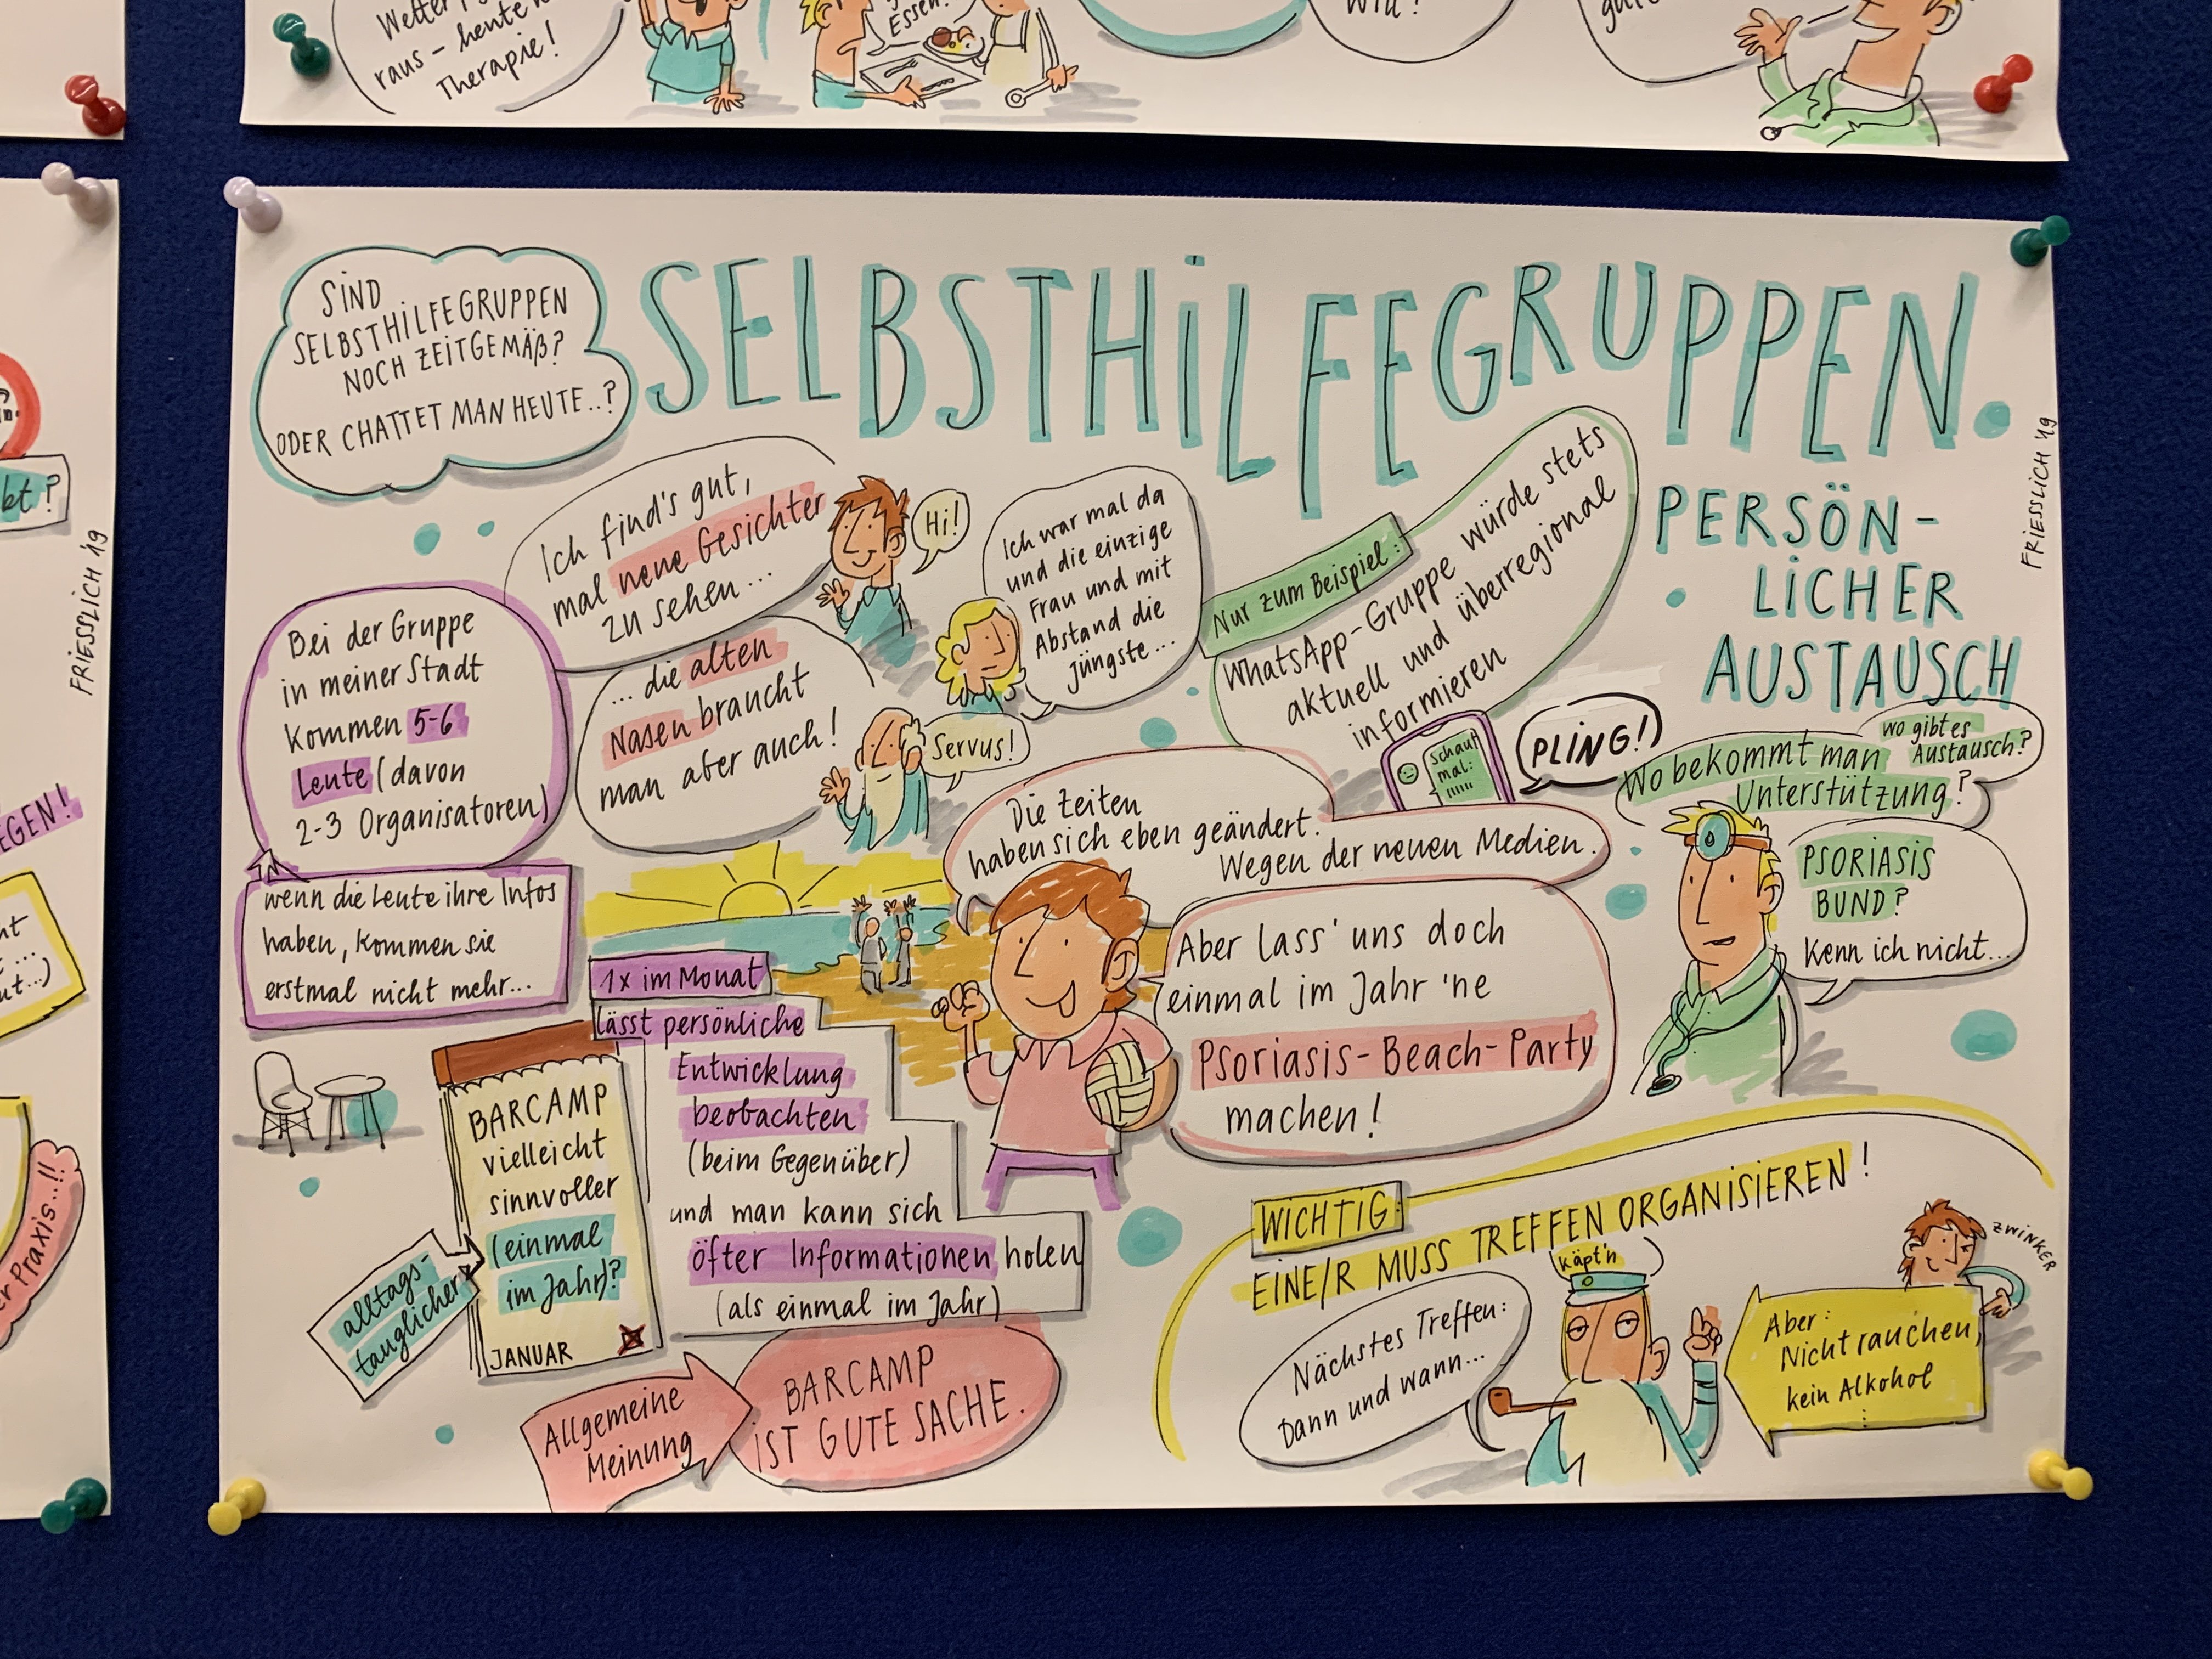 raus - heute
Therapie!
Essen!
kt?
FRIESSLICH '19
EGEN!
er Praxis..!!
SIND
SELBSTHILFEGRUPPEN
NOCH ZEITGEMÄß?
ODER CHATTET MAN HEUTE..?
SELBSTHILFEGRUPPEN.
PERSÖN-
LICHER
AUSTAUSCH
FRIESSLICH '19
Ich find's gut,
mal neue Gesichter
zu sehen...
Hi!
... die alten
Nasen braucht
man aber auch!
Servus!
Ich war mal da
und die einzige
Frau und mit
Abstand die
jüngste...
Nur zum Beispiel:
WhatsApp-Gruppe würde stets
aktuell und überregional
informieren
schaut
mal:
PLING!
Bei der Gruppe
in meiner Stadt
kommen 5-6
Leute (davon
2-3 Organisatoren)
wenn die Leute ihre Infos
haben, kommen sie
erstmal nicht mehr...
Die Zeiten
haben sich eben geändert.
Wegen der neuen Medien.
Aber lass' uns doch
einmal im Jahr 'ne
Psoriasis-Beach-Party
machen!
Wo bekommt man
Unterstützung?
wo gibt es
Austausch?
PSORIASIS
BUND?
Kenn ich nicht...
1x im Monat
lässt persönliche
Entwicklung
beobachten
(beim Gegenüber)
und man kann sich
öfter Informationen holen
(als einmal im Jahr)
BARCAMP
vielleicht
sinnvoller
(einmal
im Jahr)?
JANUAR
alltags-
tauglicher
Allgemeine
Meinung
BARCAMP
IST GUTE SACHE.
WICHTIG:
EINE/R MUSS TREFFEN ORGANISIEREN!
Käpt'n
Nächstes Treffen:
Dann und wann...
zwinker
Aber:
Nicht rauchen,
kein Alkohol
⋮